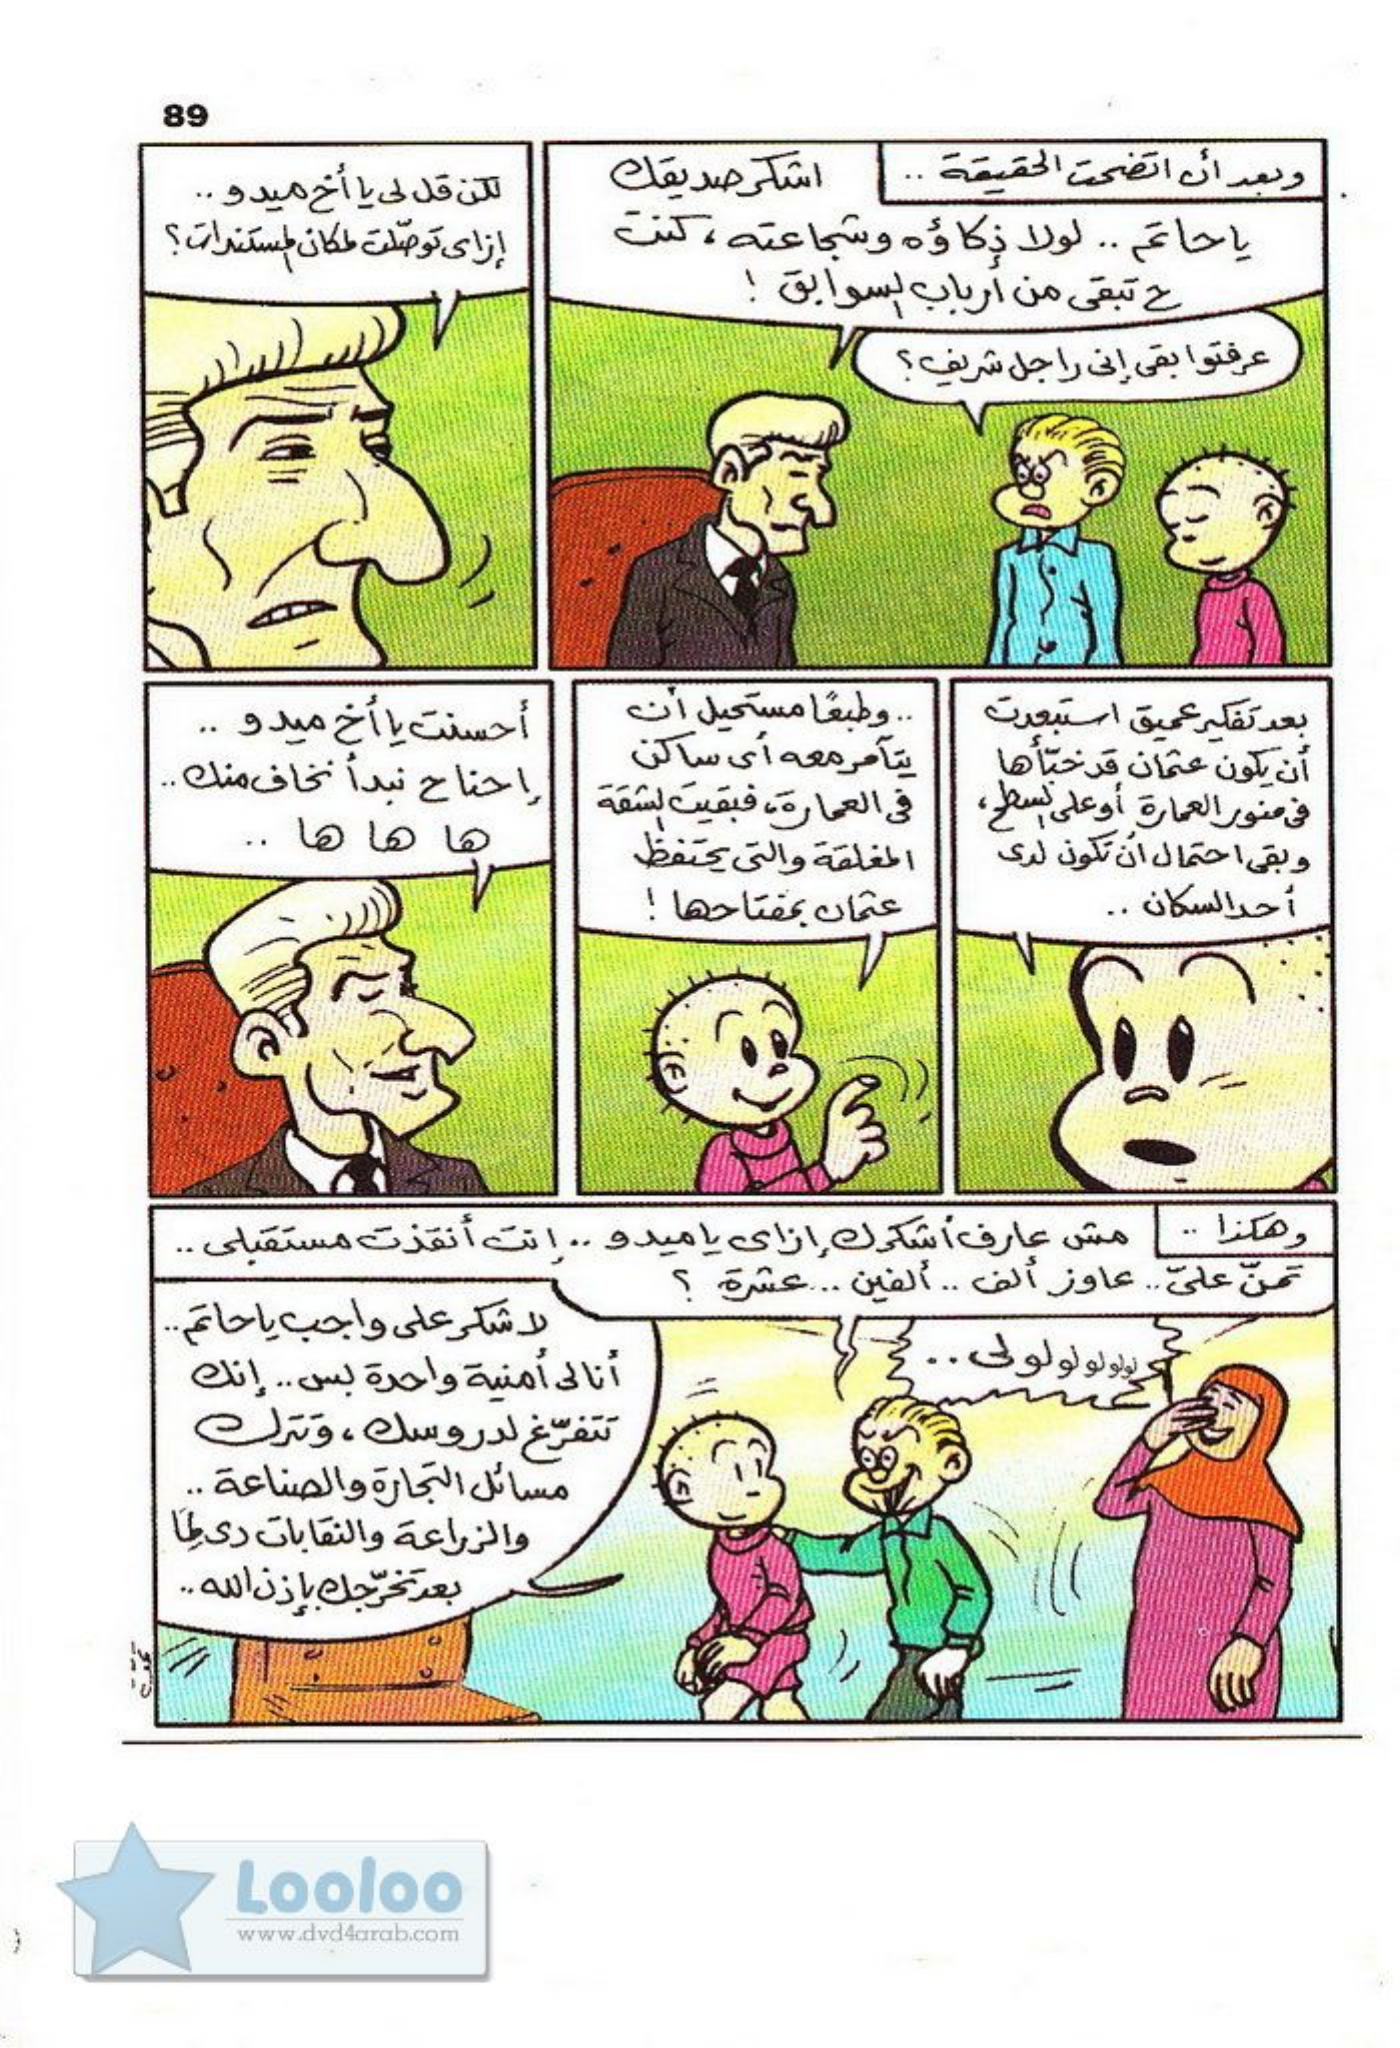 89
وبعد أن اتضحت الحقيقة ..
اشكر صديقك
يا حاتم .. لولا ذكاؤه وشجاعته ، كنت
ح تبقى من أرباب السوابق !
عرفتوا بقى إنى راجل شريف ؟
لكن قل لى يا أخ ميدو ..
إزاى توصّلت لمكان المستندات ؟
بعد تفكير عميق استبعدت
أن يكون عثمان قد خبّأها
فى منور العمارة أو على السطح ،
وبقى احتمال أن تكون لدى
أحد السكان ..
.. وطبعًا مستحيل أن
يتآمر معه أى ساكن
فى العمارة ، فبقيت الشقة
المغلقة والتى يحتفظ
عثمان بمفتاحها !
أحسنت يا أخ ميدو ..
إحنا ح نبدأ نخاف منك ..
ها ها ها ..
وهكذا ..
مش عارف أشكرك إزاى يا ميدو .. إنت أنقذت مستقبلى ..
تمنّ علىّ .. عاوز ألف .. ألفين ... عشرة ؟
لولولولولولى ..
لا شكر على واجب يا حاتم ..
أنا لى أمنية واحدة بس .. إنك
تتفرّغ لدروسك ، وتترك
مسائل التجارة والصناعة ..
والزراعة والنقابات دى لمّا
بعد تخرّجك بإذن الله ..
Looloo
www.dvd4arab.com